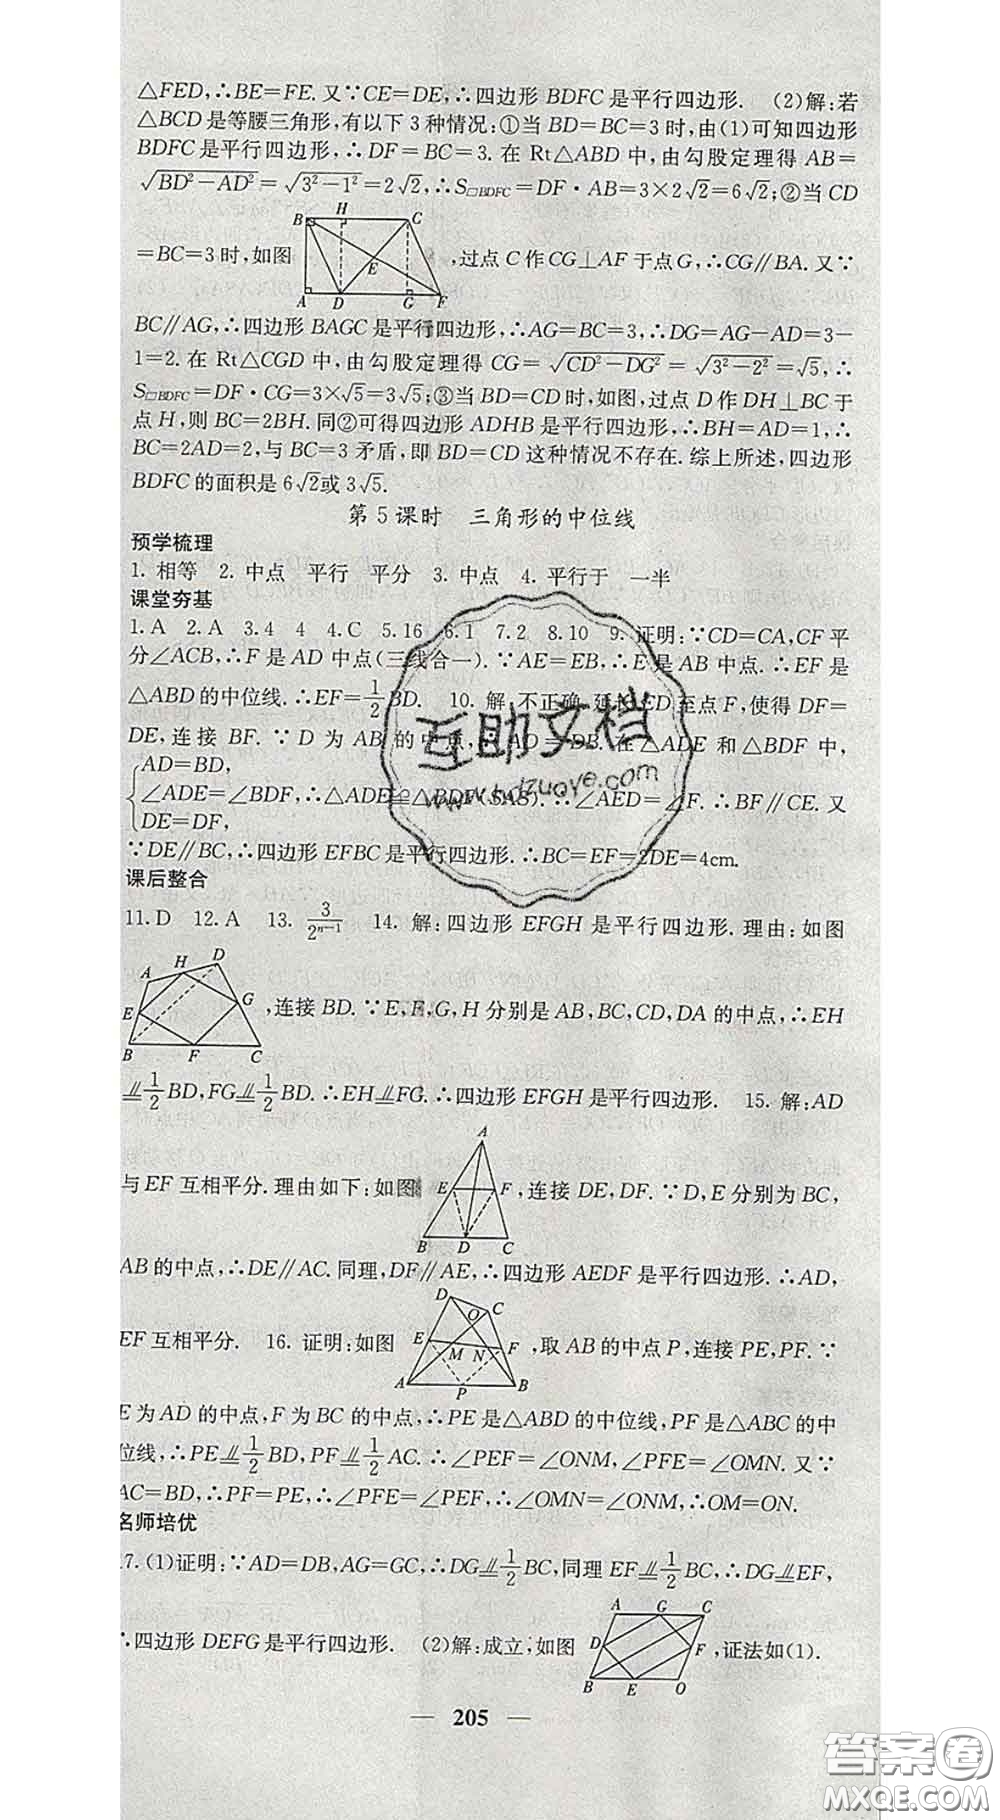 △FED,∴BE=FE.又∵CE=DE,∴四边形 BDFC 是平行四边形. (2)解:若
△BCD 是等腰三角形,有以下 3 种情况:①当 BD=BC=3 时,由(1)可知四边形
BDFC 是平行四边形,∴DF=BC=3.在 Rt△ABD 中,由勾股定理得 AB=
√(BD²-AD²)=√(3²-1²)=2√2,∴S□BDFC=DF·AB=3×2√2=6√2;②当 CD
B H C E A D G F
=BC=3 时,如图 ,过点 C 作 CG⊥AF 于点 G,∴CG∥BA.又∵
BC∥AG,∴四边形 BAGC 是平行四边形,∴AG=BC=3,∴DG=AG-AD=3-
1=2.在 Rt△CGD 中,由勾股定理得 CG=√(CD²-DG²)=√(3²-2²)=√5,∴
S□BDFC=DF·CG=3×√5=3√5;③当 BD=CD 时,如图,过点 D 作 DH⊥BC 于
点 H,则 BC=2BH.同②可得四边形 ADHB 是平行四边形,∴BH=AD=1,∴
BC=2AD=2,与 BC=3 矛盾,即 BD=CD 这种情况不存在.综上所述,四边形
BDFC 的面积是 6√2或 3√5.
第 5 课时 三角形的中位线
预学梳理
1. 相等 2. 中点 平行 平分 3. 中点 4. 平行于 一半
课堂夯基
1.A 2.A 3.4 4 4.C 5.16 6.1 7.2 8.10 9. 证明:∵CD=CA,CF 平
分∠ACB,∴F 是 AD 中点(三线合一).∵AE=EB,∴E 是 AB 中点.∴EF 是
△ABD 的中位线.∴EF=1/2BD. 10. 解:不正确.延长 ED 至点 F,使得 DF=
DE,连接 BF.∵D 为 AB 的中点,∴AD=DB.在△ADE 和△BDF 中,
{AD=BD,
∠ADE=∠BDF,∴△ADE≌△BDF(SAS).∴∠AED=∠F.∴BF∥CE.又
DE=DF,
∵DE∥BC,∴四边形 EFBC 是平行四边形.∴BC=EF=2DE=4cm.
互助文档
www.hdzuoye.com
课后整合
11.D 12.A 13. 3/2ⁿ⁻¹ 14. 解:四边形 EFGH 是平行四边形.理由:如图
A H D E G B F C
,连接 BD.∵E,F,G,H 分别是 AB,BC,CD,DA 的中点,∴EH
⫽1/2BD,FG⫽1/2BD.∴EH⫽FG.∴四边形 EFGH 是平行四边形. 15. 解:AD
A E F B D C
与 EF 互相平分.理由如下:如图 ,连接 DE,DF.∵D,E 分别为 BC,
AB 的中点,∴DE∥AC.同理,DF∥AE,∴四边形 AEDF 是平行四边形.∴AD,
D O C E M N F A P B
EF 互相平分. 16. 证明:如图 ,取 AB 的中点 P,连接 PE,PF.∵
E 为 AD 的中点,F 为 BC 的中点,∴PE 是△ABD 的中位线,PF 是△ABC 的中
位线,∴PE⫽1/2BD,PF⫽1/2AC.∴∠PEF=∠ONM,∠PFE=∠OMN.又∵
AC=BD,∴PF=PE,∴∠PFE=∠PEF,∴∠OMN=∠ONM,∴OM=ON.
名师培优
17.(1)证明:∵AD=DB,AG=GC,∴DG⫽1/2BC,同理 EF⫽1/2BC,∴DG⫽EF,
A G C D F B E O
∴四边形 DEFG 是平行四边形. (2)解:成立,如图 ,证法如(1).
— 205 —
答案圈
MXQE.COM